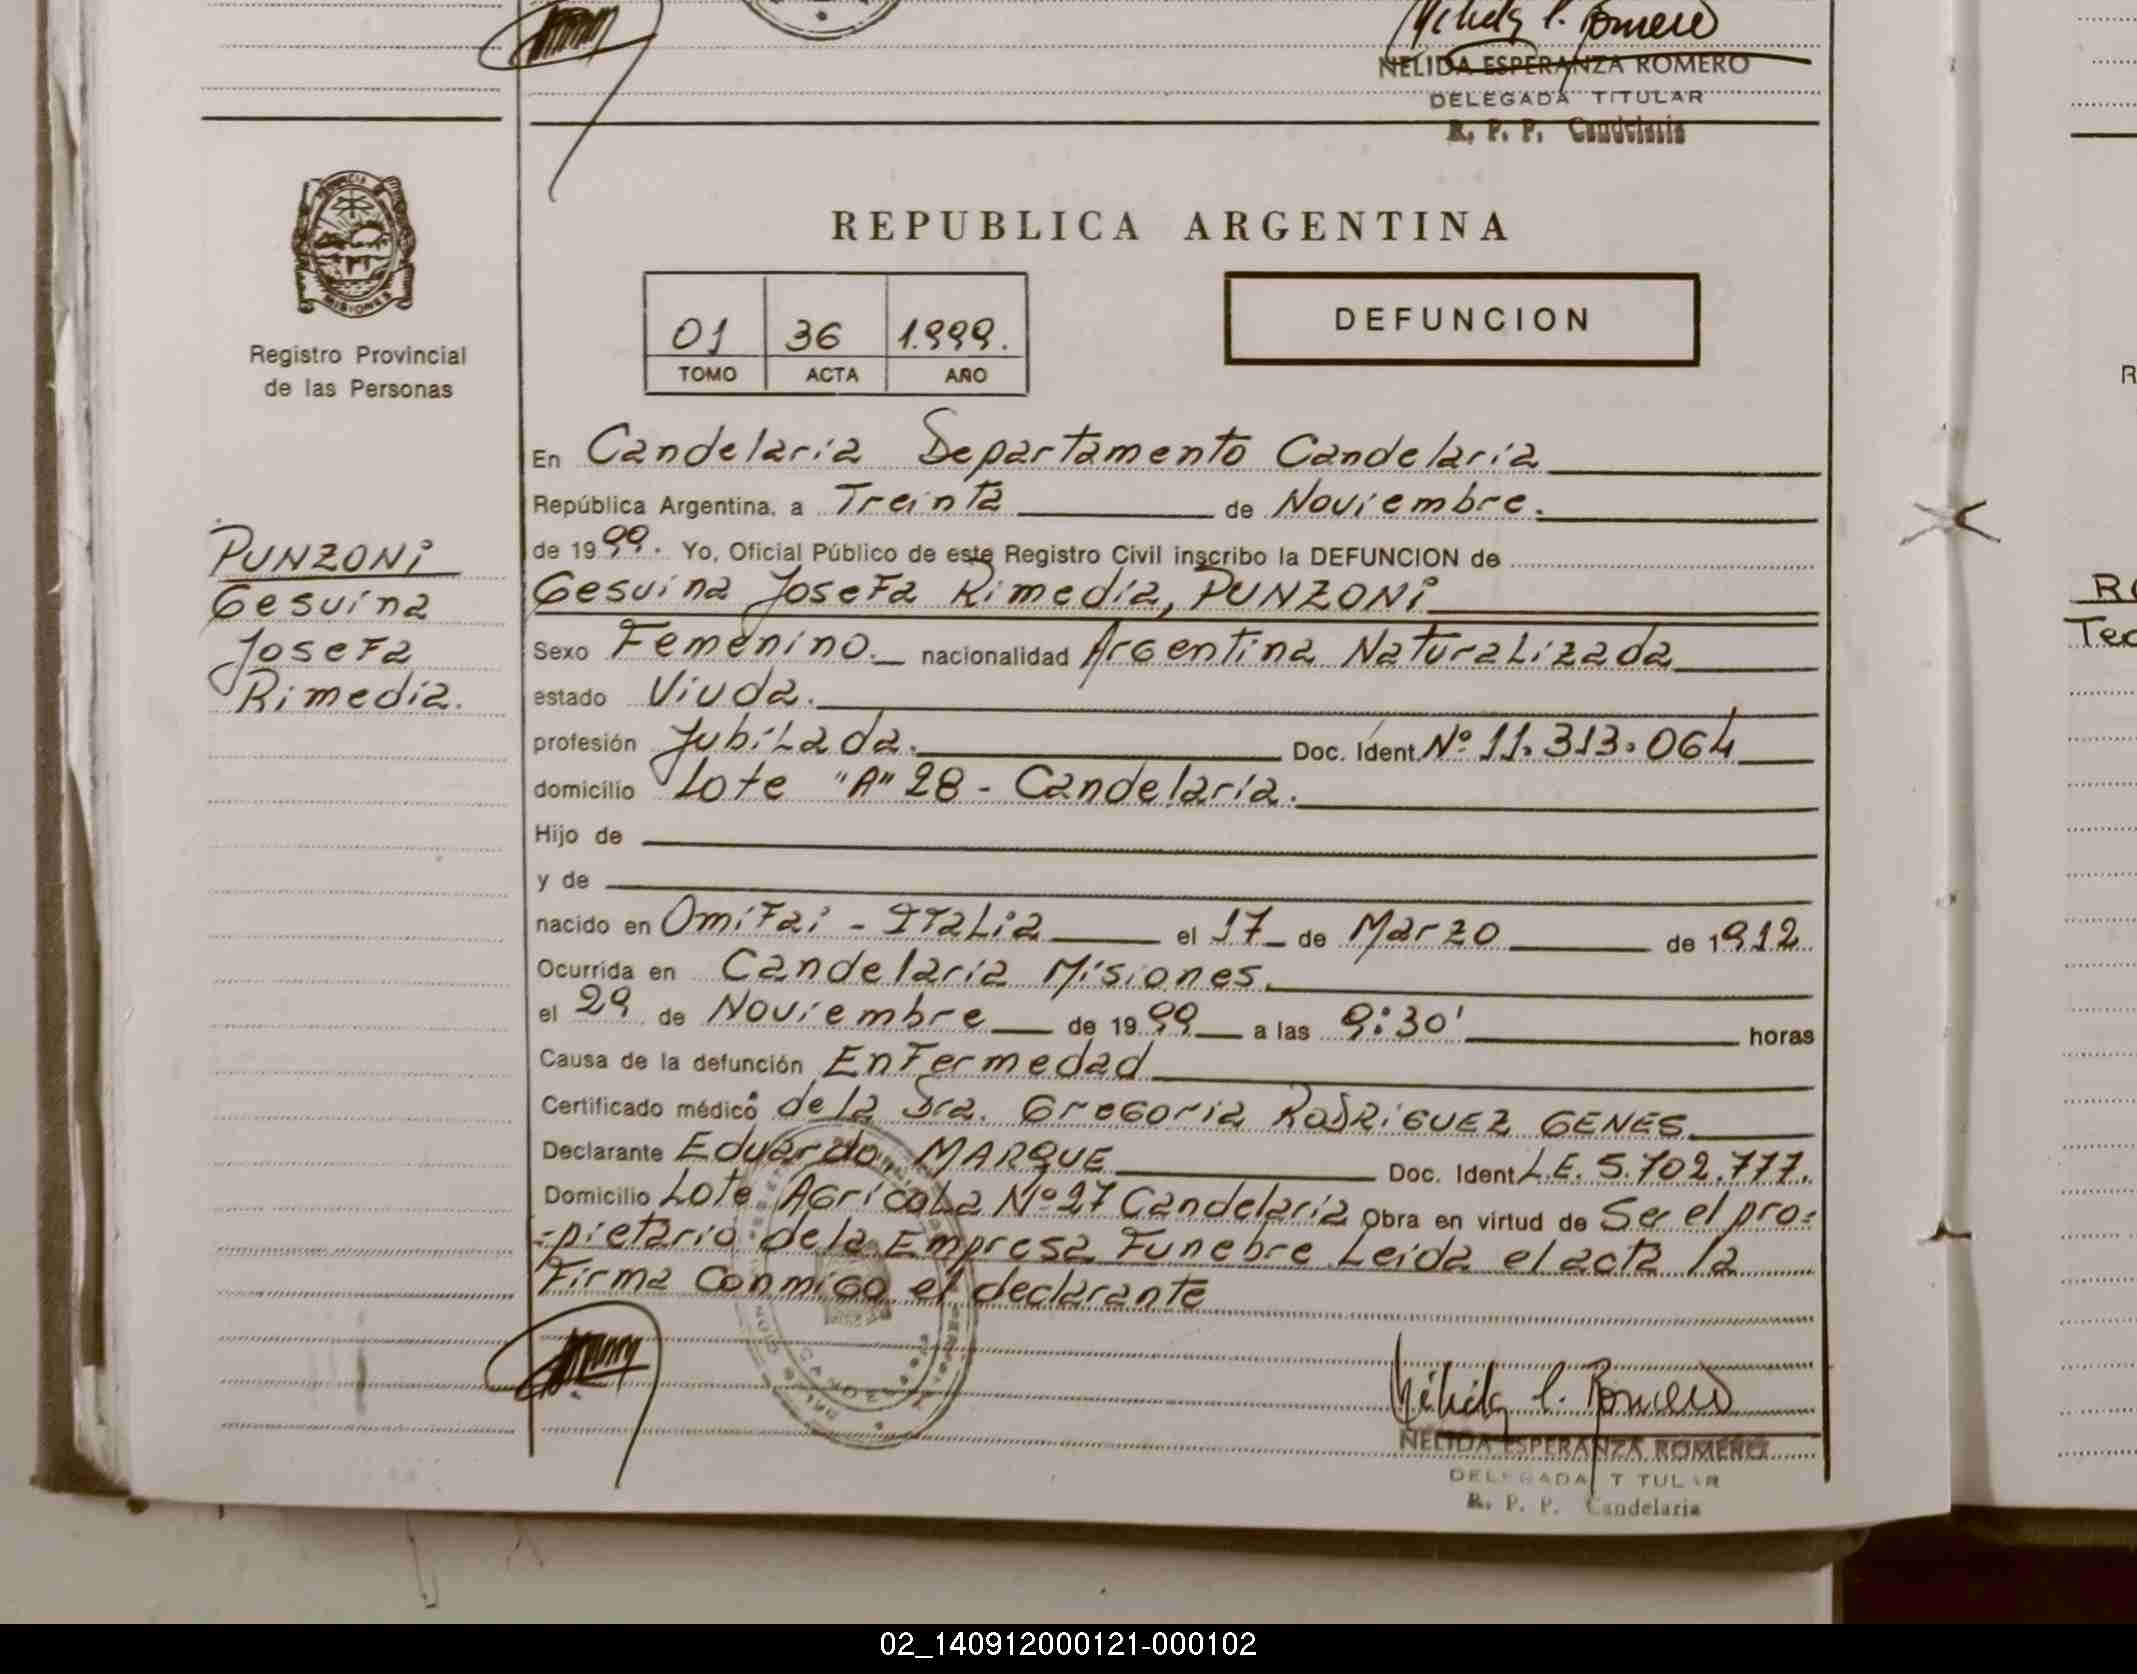 Nelida E. Romero
NELIDA ESPERANZA ROMERO
DELEGADA TITULAR
R. P. P. Candelaria
PROVINCIA D
MISIONES
Registro Provincial
de las Personas
PUNZONI
Gesuina
Josefa
Rimedia.
REPUBLICA ARGENTINA
01 36 1.999.
TOMO ACTA AÑO
DEFUNCION
En Candelaria Departamento Candelaria
República Argentina, a Treinta de Noviembre.
de 1999. Yo, Oficial Público de este Registro Civil inscribo la DEFUNCION de
Gesuina Josefa Rimedia, PUNZONI
Sexo Femenino. nacionalidad Argentina Naturalizada
estado Viuda.
profesión Jubilada. Doc. Ident. Nº 11.313.064
domicilio Lote "A" 28 - Candelaria.
Hijo de
y de
nacido en Omifai - Italia el 17 de Marzo de 1912
Ocurrida en Candelaria Misiones.
el 29 de Noviembre de 1999 a las 9:30' horas
Causa de la defunción Enfermedad
Certificado médico de la Dra. Gregoria RODRIGUEZ GENES
Declarante Eduardo, MARQUE Doc. Ident L.E. 5.702.777.
Domicilio Lote Agricola Nº 27 Candelaria Obra en virtud de Ser el pro=
=pietario de la Empresa Funebre Leida el acta la
Firma conmigo el declarante
Nelida E. Romero
NELIDA ESPERANZA ROMERO
DELEGADA TITULAR
R. P. P. Candelaria
R
Tec
02_140912000121-000102